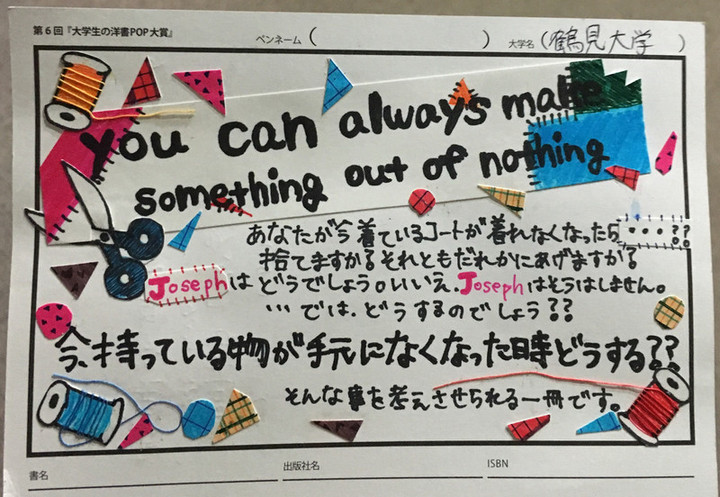 第6回『大学生の洋書POP大賞』 ペンネーム( ) 大学名(鶴見大学 )
You can always make
something out of nothing
あなたが今着ているコートが着れなくなったら…??
捨てますか?それともだれかにあげますか?
Josephはどうでしょう。いいえ.Josephはそうはしません。
…では、どうするのでしょう??
今、持っている物が手元になくなった時どうする??
そんな事を考えさせられる一冊です。
書名 出版社名 ISBN